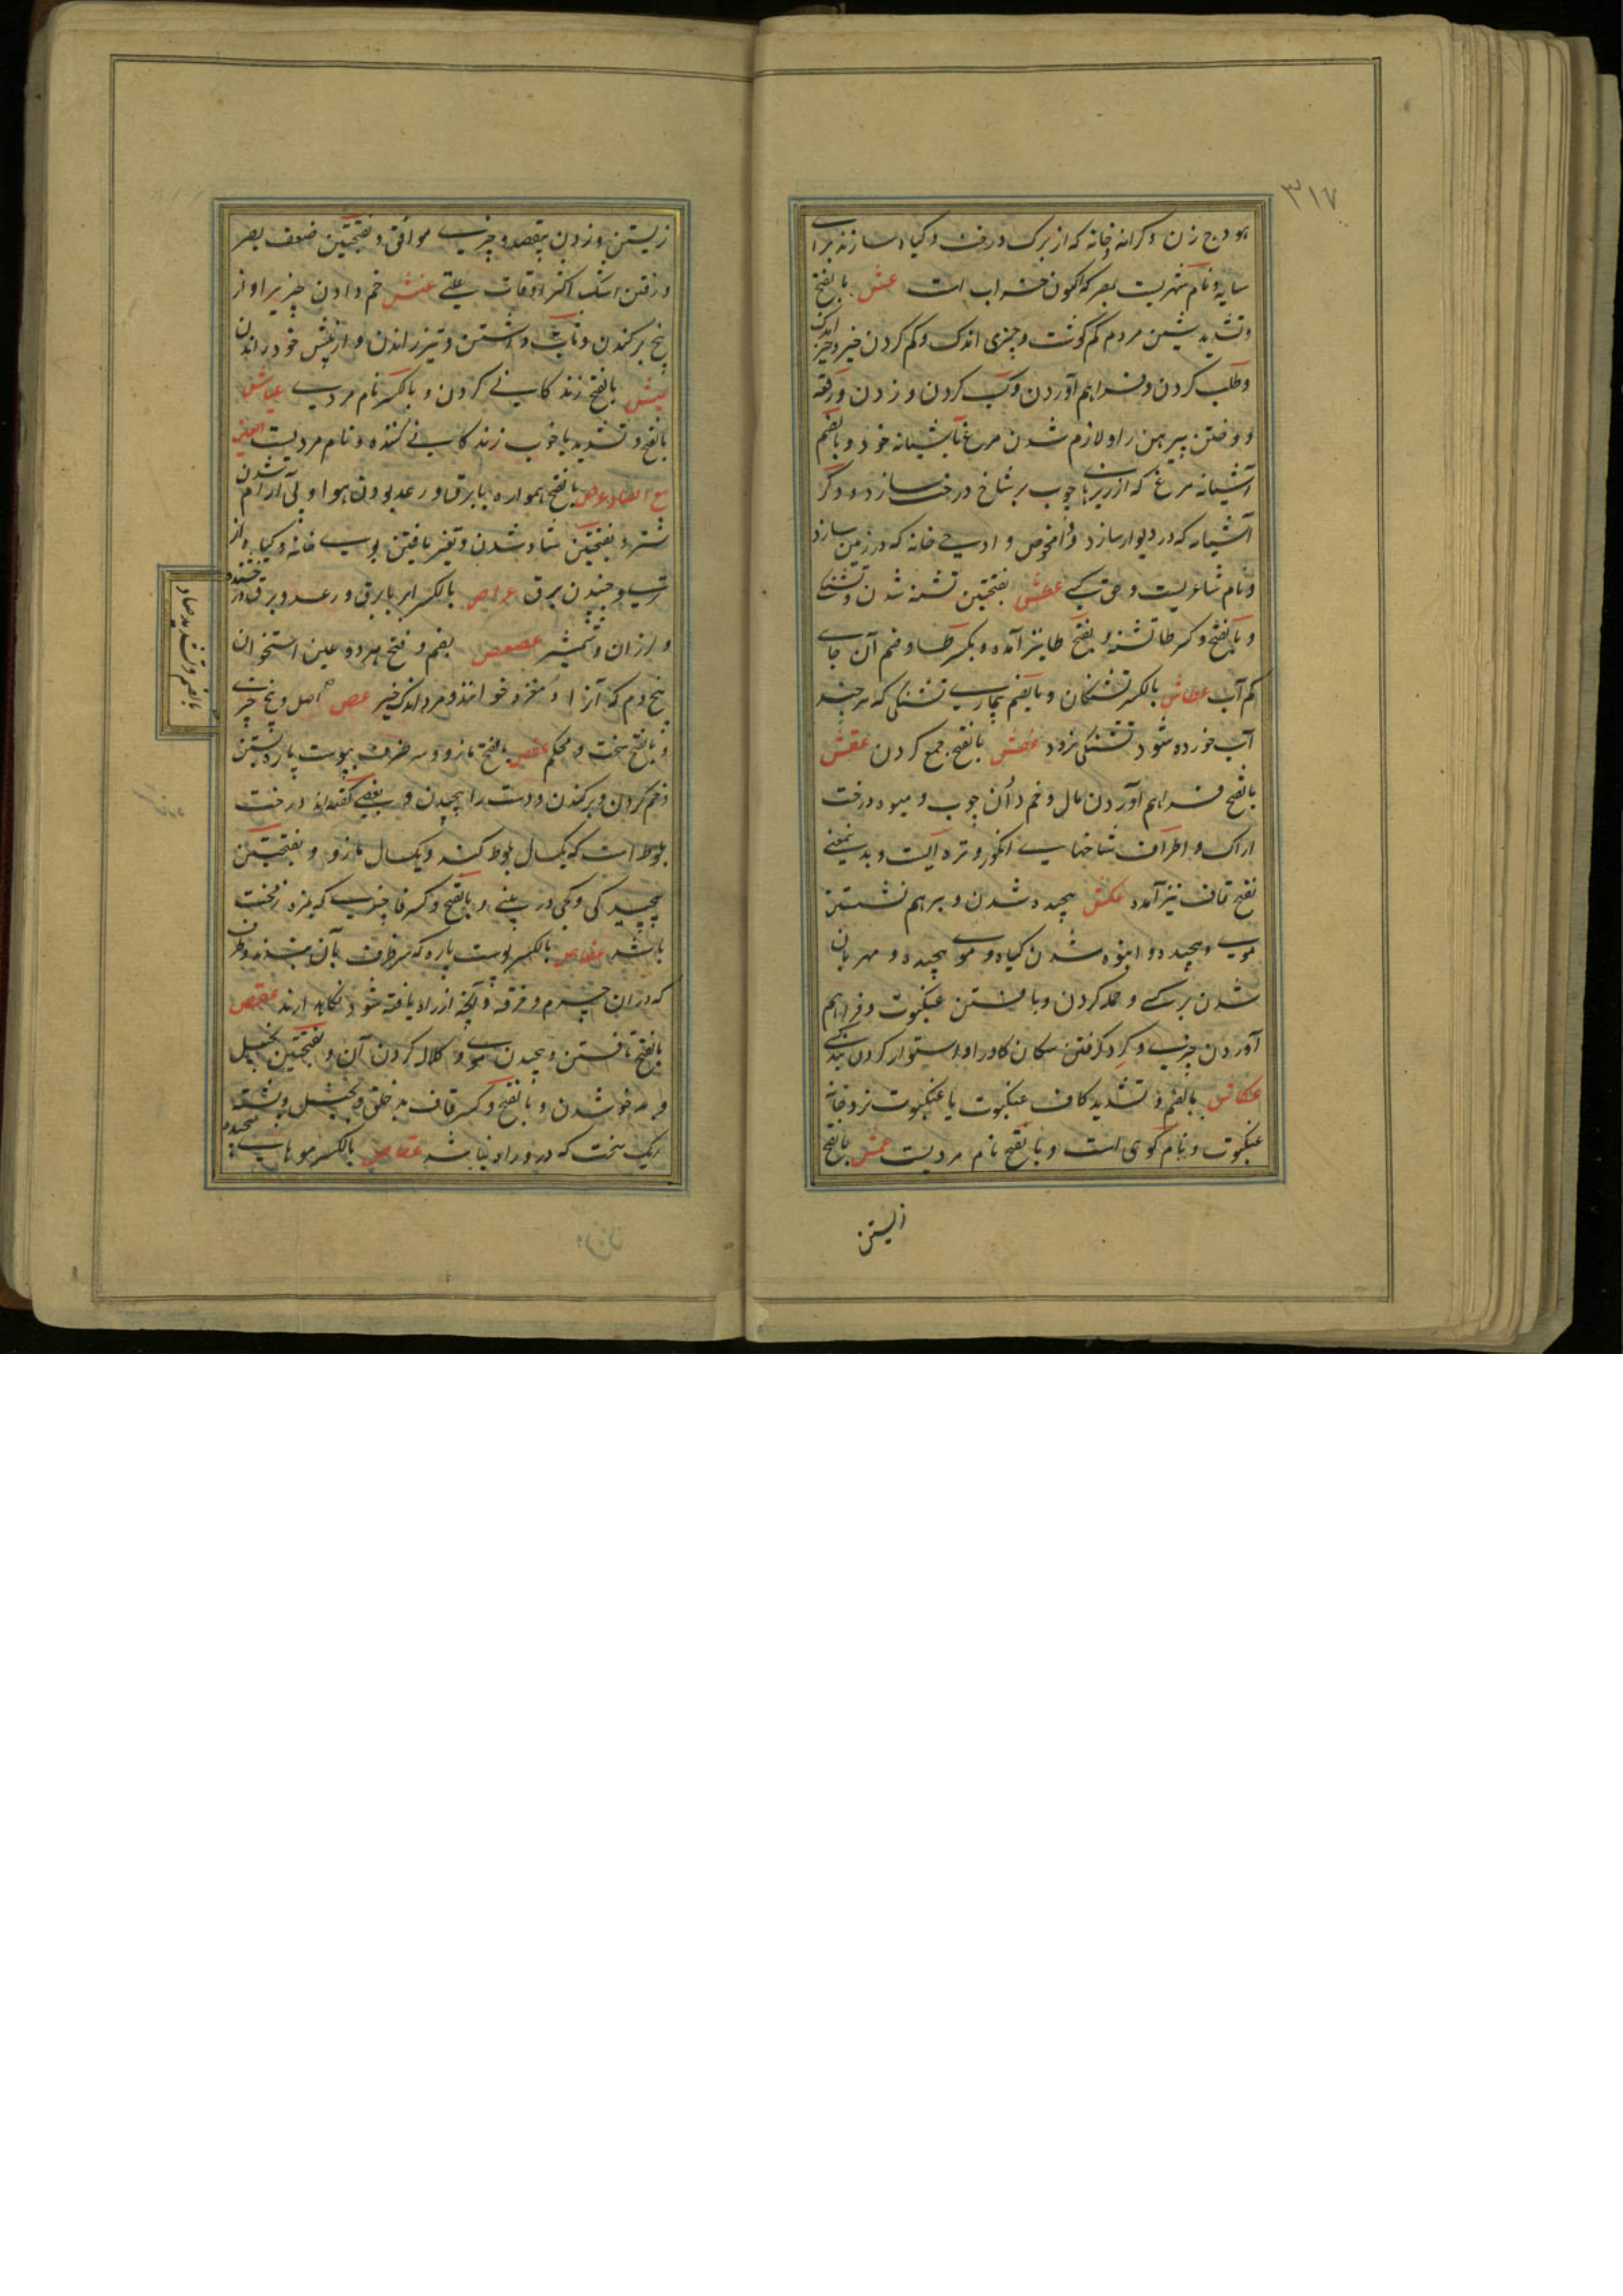 ۳۱۷
هودج زن و کرانه خانه که از برک درخت و کیاه سازند برای
سایه و نام شهریست بمصر که اکنون خراب است عش بالفتح
و تشدید شین مردم کم کوشت و چیزی اندک و کم کردن خیر و چیز اندک
و طلب کردن و فراهم آوردن و کسب کردن و زدن و رقعه
و دوختن پیرهن را و لازم شدن مرغ آشیانه خود و بالضم
آشیانه مرغ که از ریزها چوب بر شاخ درخت سازد و وکر
آشیانه که در دیوار سازد و افحوص و ادحی خانه که در زمین سازد
و نام شاعریست و حق کسی عطش بفتحتین تشنه شدن و تشنکی
و بالفتح و کسر طا تشنه و بفتح طا نیز آمده و بکسر طا و ضم آن جای
کم آب عطاش بالکسر تشنکان و بالضم بیماری تشنکی که هر چند
آب خورده شود تشنکی نرود عفش بالفتح جمع کردن عقش
بالفتح فراهم آوردن مال و خم دادن چوب و میوه درخت
اراک و اطراف شاخهای انکور و تره ایست و بدینمعنی
بفتح قاف نیز آمده عکش پیچیده شدن و برهم نشستن
موی و پیچیده و انبوه شدن کیاه و موی پیچیده و مهربان
شدن بر کسی و حمله کردن و بافتن عنکبوت و فراهم
آوردن چیزی و کرد کرفتن سکان کاو را و استوار کردن بند کسی
عکاش بالضم و تشدید کاف عنکبوت یا عنکبوت نر و خانه
عنکبوت و نام کوهی است و بالفتح نام مردیست عمش بالفتح
زیستن
زیستن و زدن بیقصد و چیزی موافق و بفتحتین ضعف بصر
و رفتن اشک اکثر اوقات بعلتی عنش خم دادن چیزیرا و از
بیخ برکندن و داشتن و تیز راندن و از پیش خود راندن
عیش بالفتح زندکانی کردن و بالکسر نام مردی عیاش
بالفتح و تشدید یا خوب زندکانی کننده و نام مردیست العین
مع الصاد عرص بالفتح همواره با برق و رعد بودن هوا و بی آرام شدن
شتر و بفتحتین شاد شدن و تغیر یافتن بوی خانه و کیاه از
تری و جنبیدن برق عراص بالکسر ابر با برق و رعد و برق درخشنده
و لرزان و شمشیر عصعص بضم و فتح هر دو عین استخوان
بیخ دم که آنرا دمغزه خوانند و مرد اندک خیر عص اصل و بیخ چیزی
و بالفتح سخت و محکم عفص بالفتح مازو و سر ظرف بپوست پاره بستن
و خم کردن و برکندن و دست را پیچیدن و بعضی کفته‌اند درخت
بلوط است که یکسال بلوط کند و یکسال مازو و بفتحتین
پیچیدکی و کجی در بینی و بالفتح و کسر فا چیزی که مزه زمخت
باشد عفاص بالکسر پوست پاره که سر ظرف بآن بندند و ظرف
که در آن چرم و خرقه و آنچه از راه یافته شود نکاهدارند عقص
بالفتح تافتن و پیچیدن موی و کلاله کردن آن و بفتحتین بخیل
و بدخو شدن و بالفتح و کسر قاف بدخلق و بخیل و پشته
ریک سخت که در و راه نباشد عقاص بالکسر موهای پیچیده
بالضم و تشدید صاد